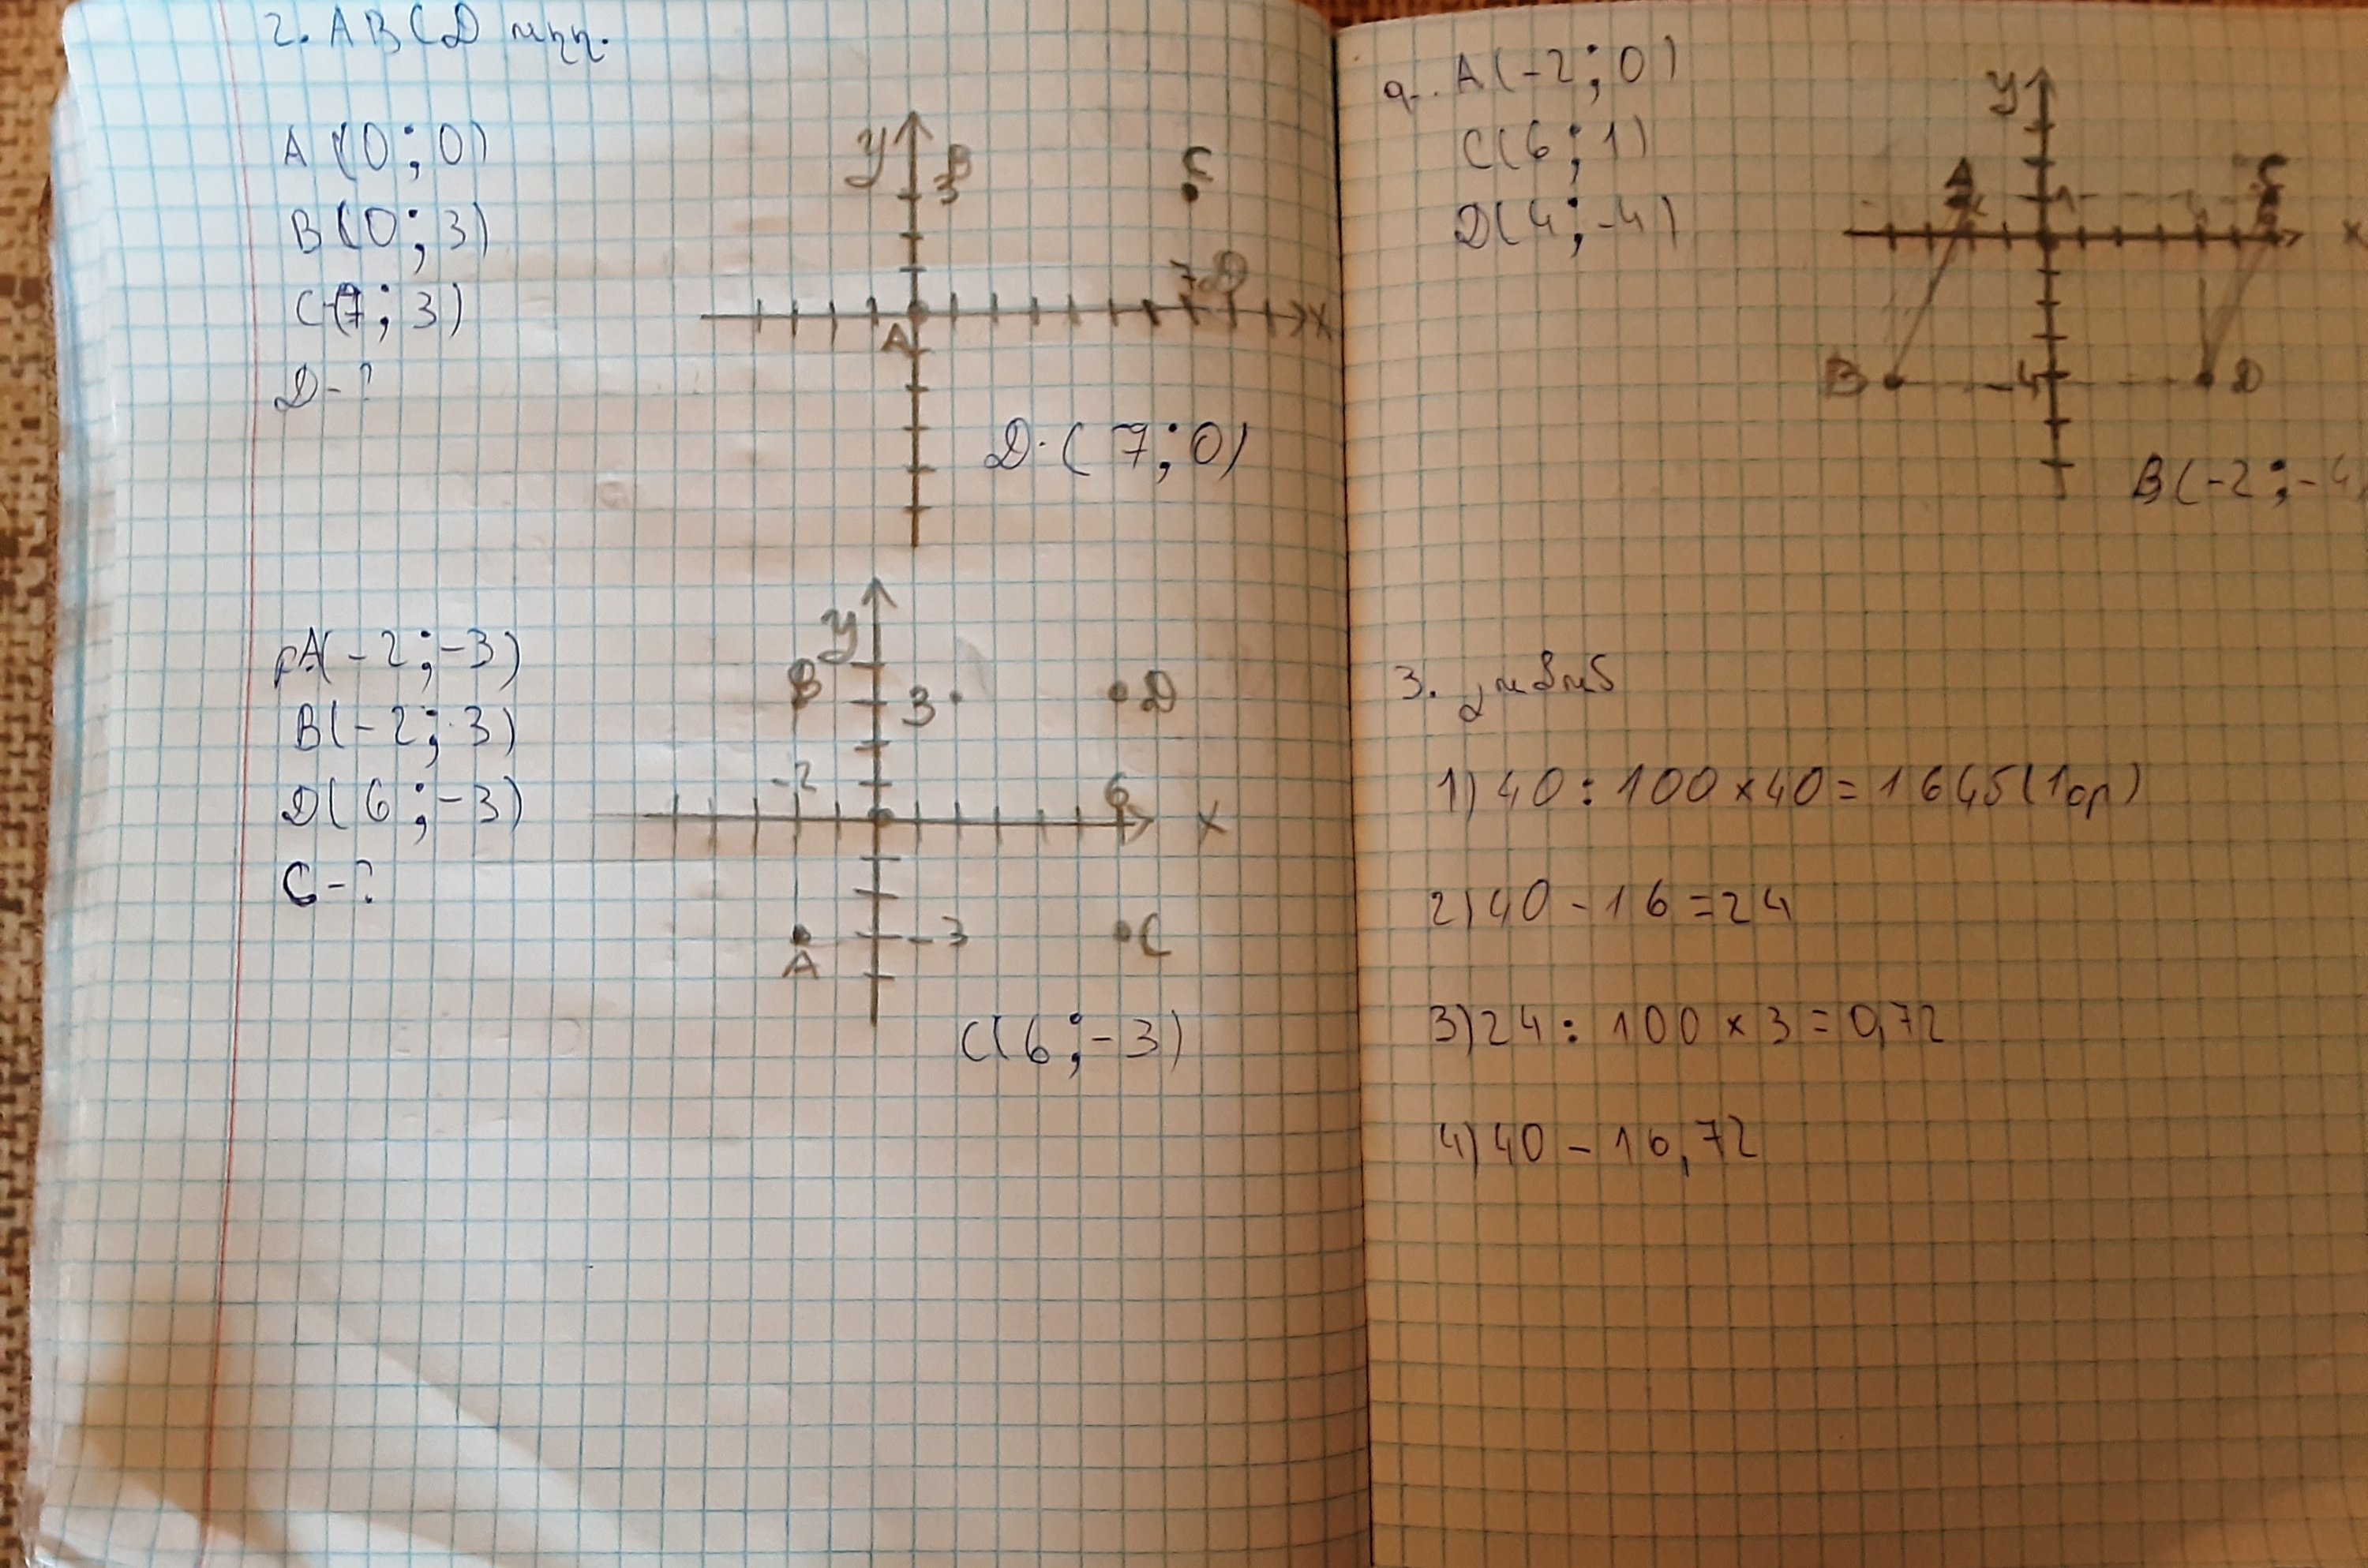 2. ABCD ուղղ.
A(0;0)
B(0;3)
C(7;3)
D-?
y
B
3
C
7 D
A
x
D(7;0)
բ. A(-2;-3)
B(-2;3)
D(6;-3)
C-?
y
B
3
D
-2
6
x
A
-3
C
C(6;-3)
գ. A(-2;0)
C(6;1)
D(4;-4)
y
A
1
C
6
x
B
-4
D
B(-2;-4
3.
1) 40 : 100 × 40 = 16
2) 40 - 16 = 24
3) 24 : 100 × 3 = 0,72
4) 40 - 16,72